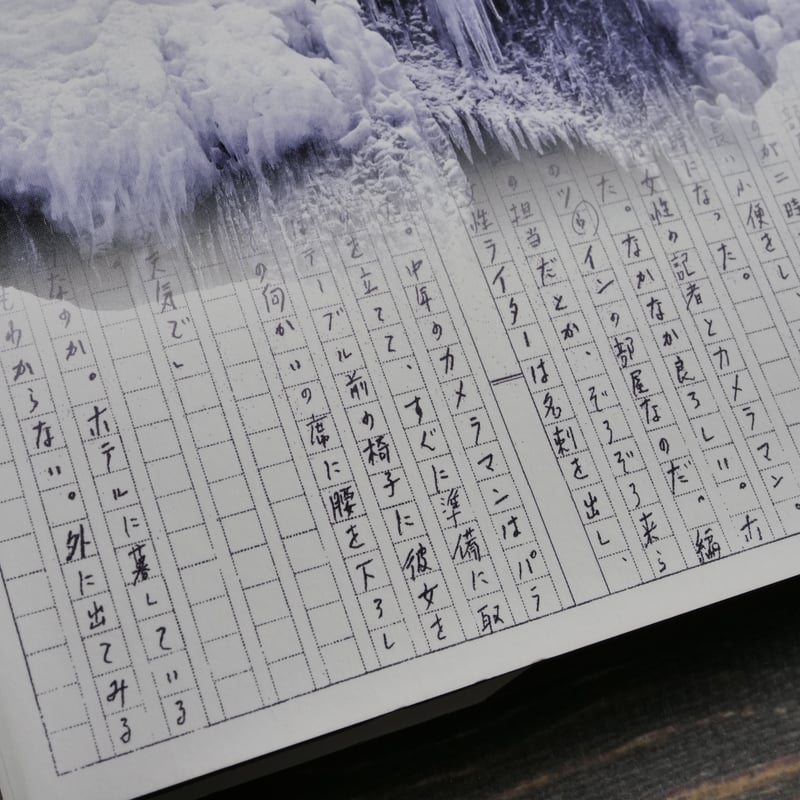 のが二時
長い小便をし
時になった。
女性の記者とカメラマン。
た。なかなか良ろしい。ホ
のツインの部屋なのだ。編
の担当だとか、ぞろぞろ来ら
女性ライターは名刺を出し、
。中年のカメラマンはパラ
を立てて、すぐに準備に取
はテーブル前の椅子に彼女を
の何かいの席に腰を下ろし
天気でし
。
なのか。ホテルに暮している
もわからない。外に出てみる